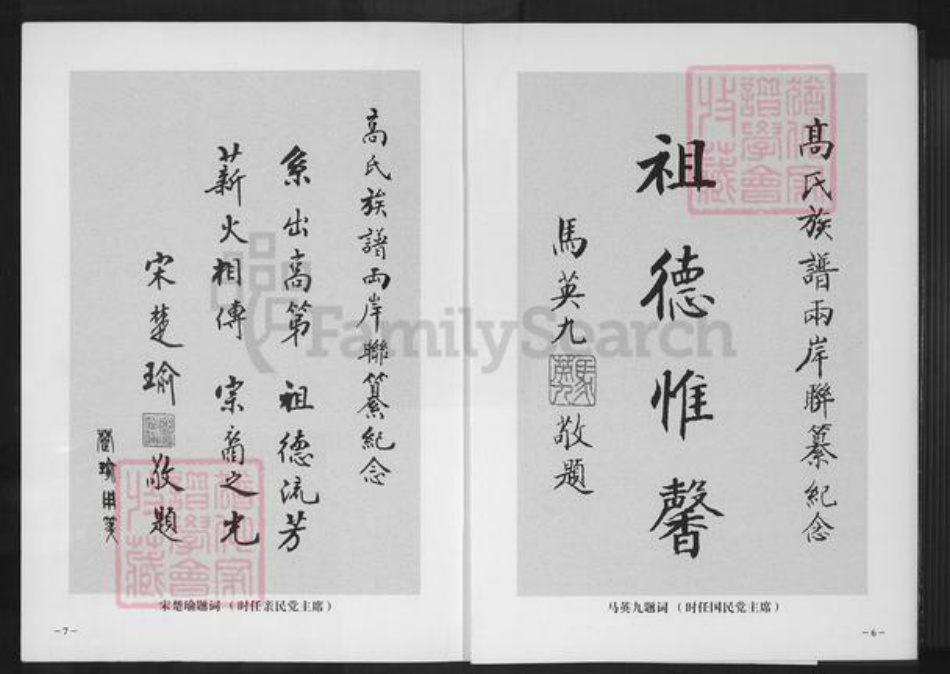 高氏族譜兩岸聯纂紀念
祖德惟馨
馬英九敬題
马英九题词（时任国民党主席）
-6-
高氏族譜兩岸聯纂紀念
系出高第 祖德流芳
薪火相傳 宗裔之光
宋楚瑜敬題
宋楚瑜题词（时任亲民党主席）
-7-
FamilySearch